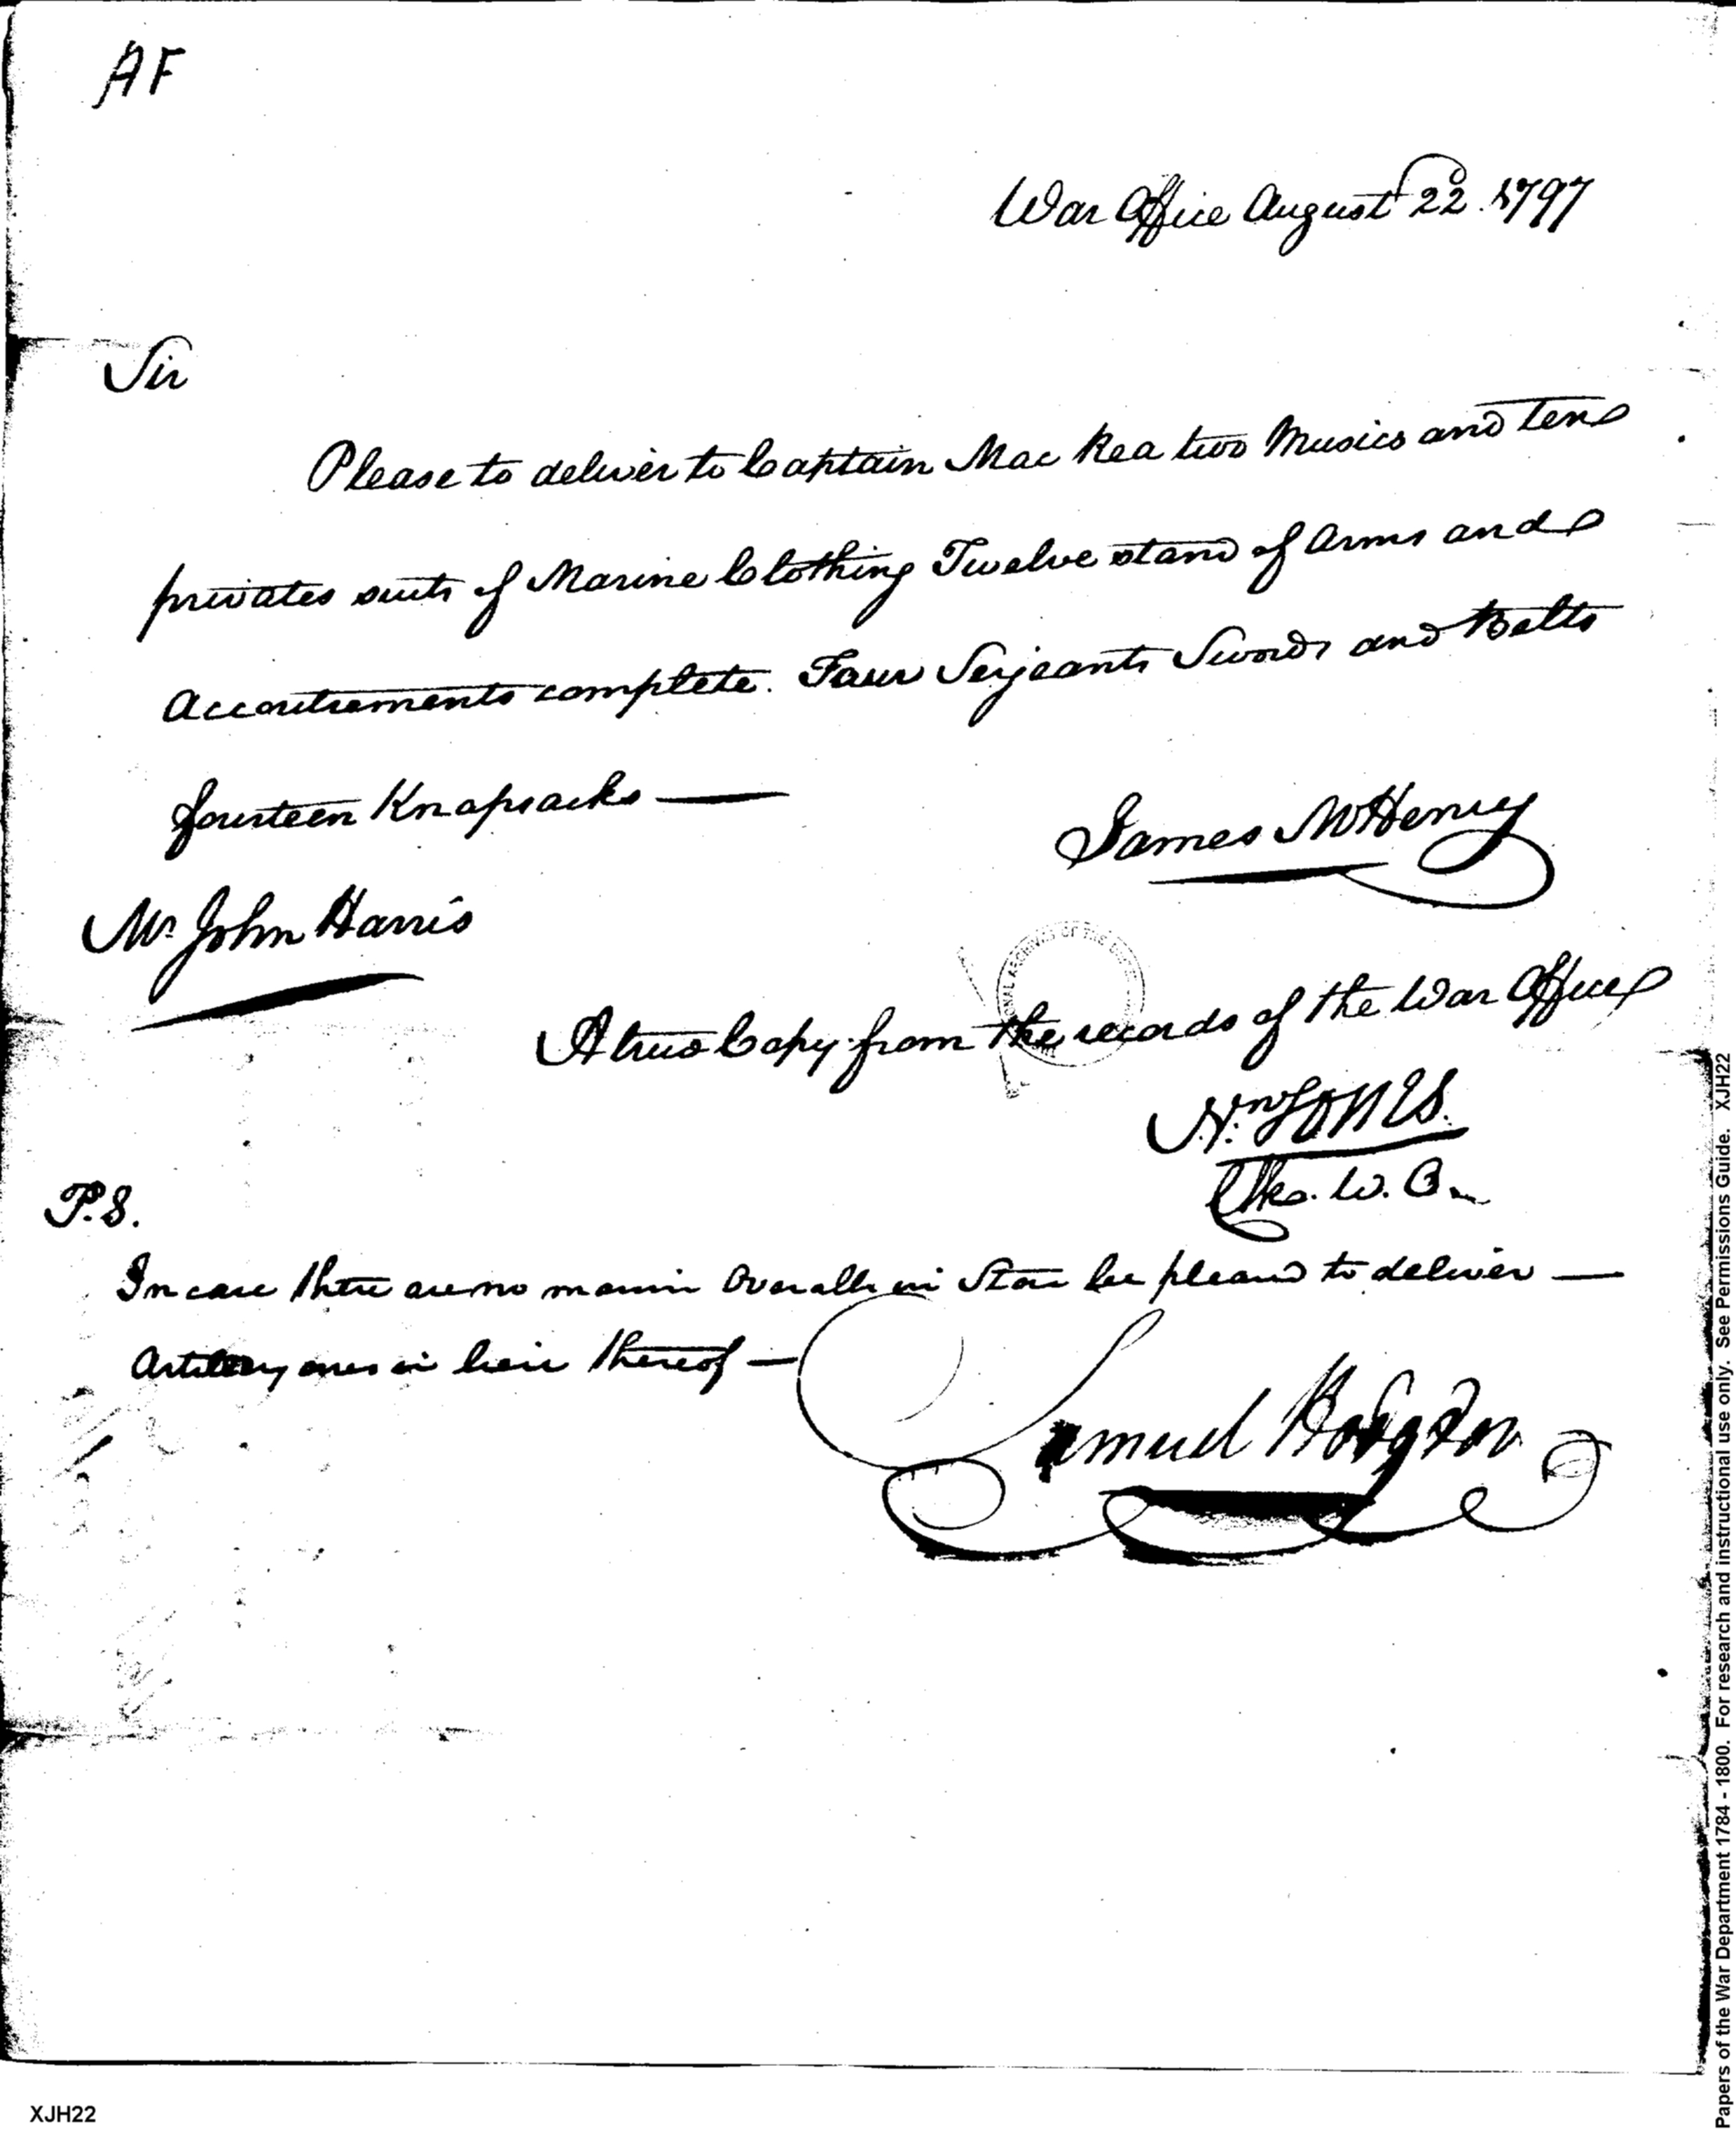 AF
War Office August 22d. 1797
Sir
Please to deliver to Captain Mac Rea two Musics and ten
privates suits of Marine Clothing Twelve stand of Arms and
Accoutrements complete. Four Serjeants Swords and Belts
fourteen Knapsacks —
James McHenry
Mr John Harris
A true Copy from the records of the War Office
Jones.
Clk. W. O.
P.S.
In case there are no marine Overalls in Store be pleased to deliver —
Artillery ones in lieu thereof —
Samuel Hodgdon
XJH22
Papers of the War Department 1784 - 1800. For research and instructional use only. See Permissions Guide. XJH22